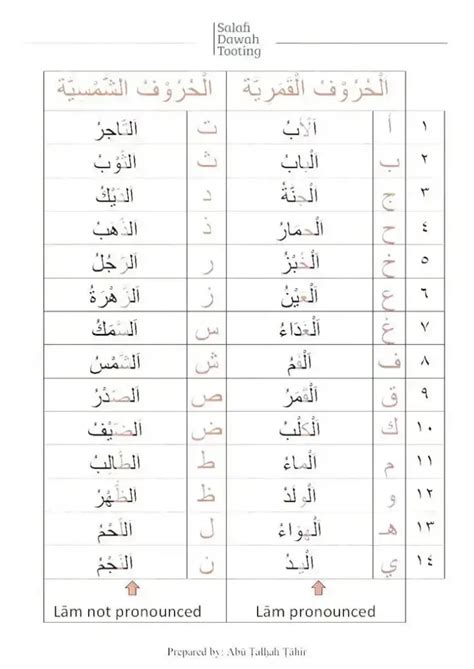 Salafi
Dawah
Tooting
الْحُرُوْفُ الْقَمَرِيَّة الْحُرُوْفُ الشَّمْسِيَّة
١ أ اَلْأَبُ ت التَّاجِرُ
٢ ب الْبَابُ ث الثَّوْبُ
٣ ج الْجَنَّةُ د الدِّيْكُ
٤ ح الْحِمَارُ ذ الذَّهَبُ
٥ خ الْخُبْزُ ر الرَّجُلُ
٦ ع الْعَيْنُ ز الزَّهْرَةُ
٧ غ الْغَدَاءُ س اَلسَّمَكُ
٨ ف الْفَمُ ش الشَّمْسُ
٩ ق الْقَمَرُ ص الصَّدْرُ
١٠ ك الْكَلْبُ ض الضَّيْفُ
١١ م الْمَاءُ ط الطَّالِبُ
١٢ و الْوَلَدُ ظ الظَّهْرُ
١٣ هـ الْهَوَاءُ ل اللَّحْمُ
١٤ ي الْيَدُ ن النَّجْمُ
Lām pronounced Lām not pronounced
Prepared by: Abū Ṭalḥah Ṭāhir